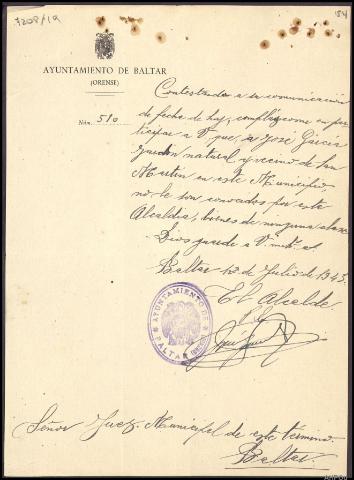 7208/19
154
AYUNTAMIENTO DE BALTAR
(ORENSE)
Núm. 510
Contestando a su comunicación
de fecha de hoy, complázcome en par-
ticipar a V. que, a José García
natural y vecino de San
Martín en este Municipio
no le son conocidos por esta
Alcaldía, bienes de ninguna clase.
Dios guarde a V. m. a.
Baltar 13 de Julio de 1945.
El Alcalde
AYUNTAMIENTO DE
BALTAR (ORENSE)
Señor Juez Municipal de este término.
Baltar.